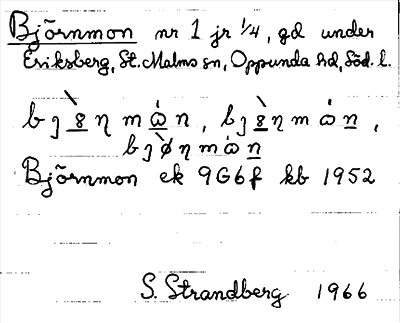 Björnmon nr 1 jr 1/4, gd under
Eriksberg, St. Malms sn, Oppunda hd, Söd. l.
Björnmon ek 9G6f kb 1952
S. Strandberg 1966